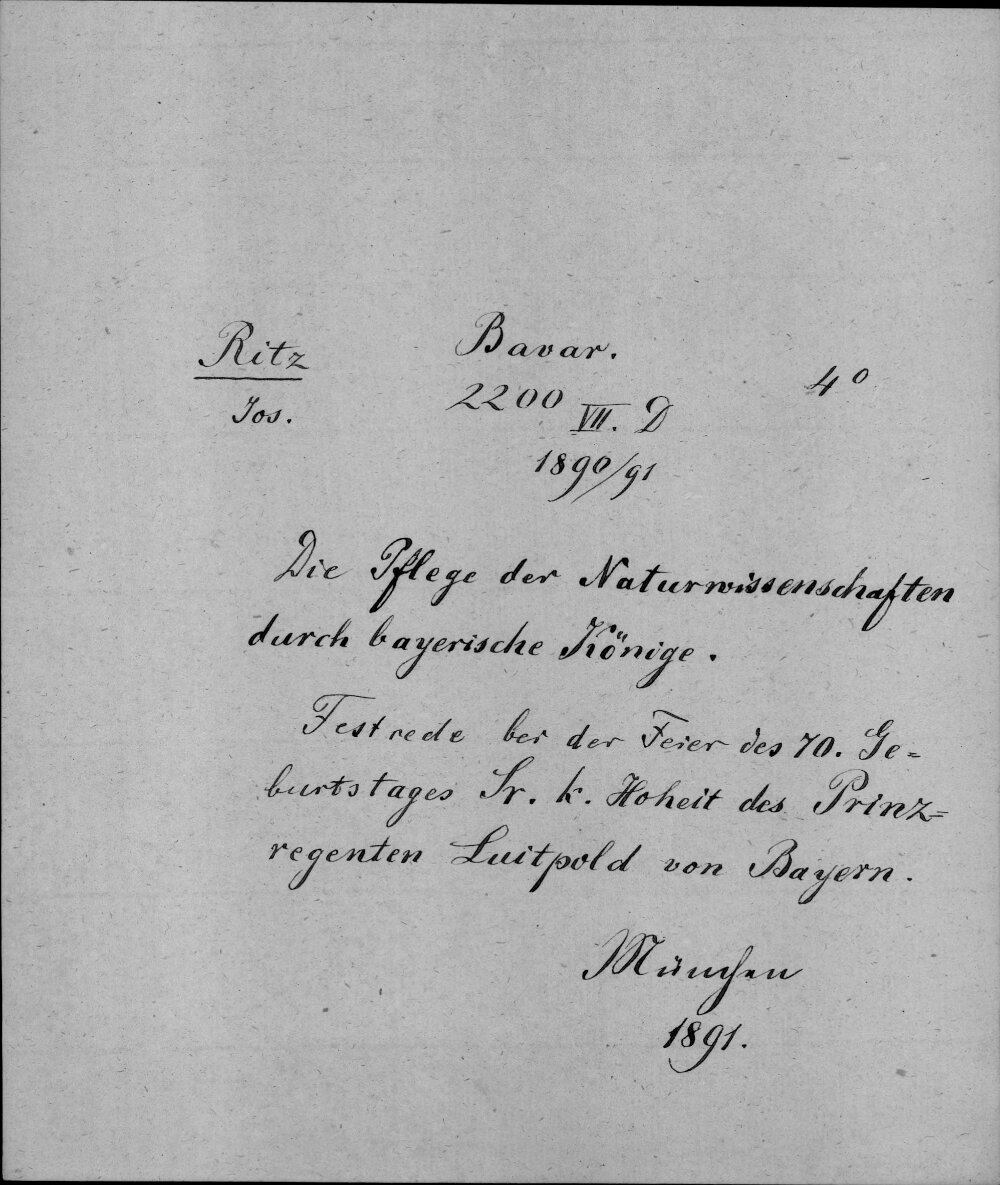 Ritz
Jos.
Bavar.
2200 VII. D
1890/91
4°
Die Pflege der Naturwissenschaften
durch bayerische Könige.
Festrede bei der Feier des 70. Ge=
burtstages Sr. k. Hoheit des Prinz=
regenten Luitpold von Bayern.
München
1891.